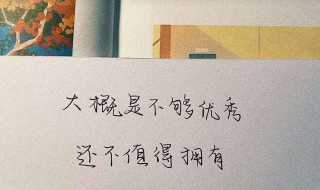 大概是不够优秀
还不值得拥有